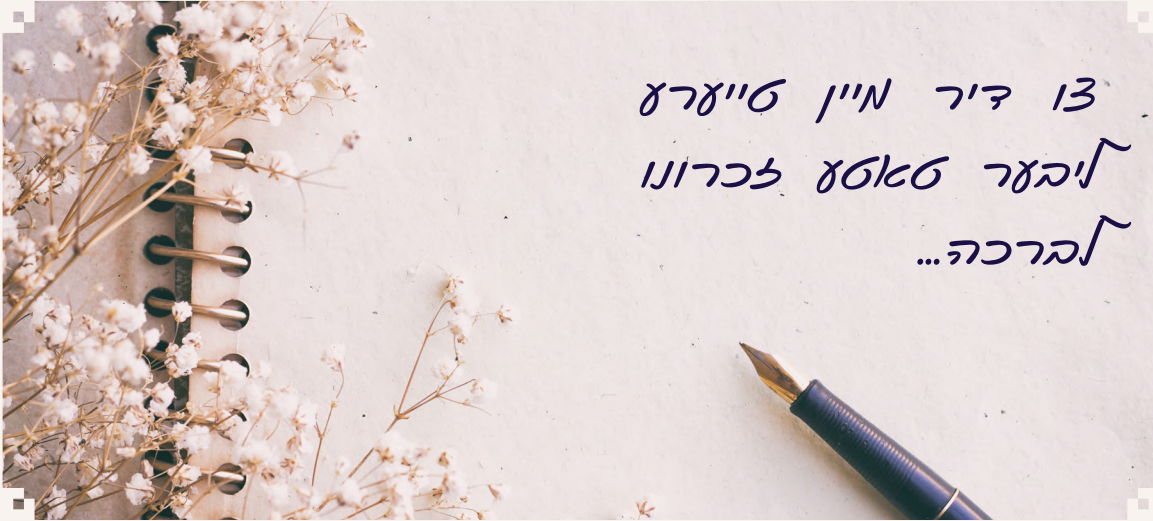 צו דיר מיין טייערע
ליבער טאטע זכרונו
לברכה...